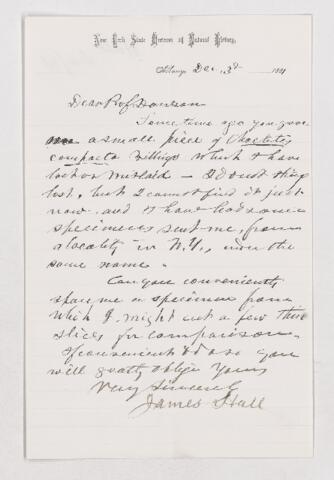 New York State Museum of Natural History,
Albany Dec. 3d 1881
Dear Prof. Dawson
Some time ago you gave
me a small piece of
compacta Billings which I have
lost or mislaid — I do not think
lost, but I cannot find it just
now and I have had some
specimens sent me, from
a locality in N.Y., under the
same name.
Can you conveniently
spare me a specimen from
which I might cut a few thin
slices for comparison.
If convenient to do so you
will greatly oblige Yours
Very Sincerely
James Hall